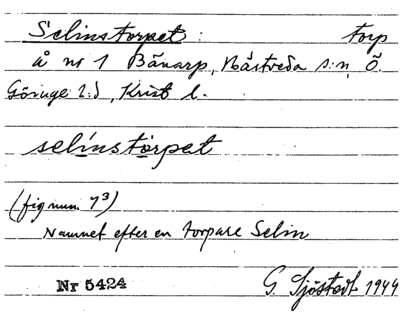 Selinstorpet: torp
å nr 1 Bånarp, Nästveda s:n, Ö.
Göinge h:d, Krist l.
selinstorpet
(fignum. 7³)
Namnet efter en torpare Selin
Nr 5424 G. Sjöstedt 1944